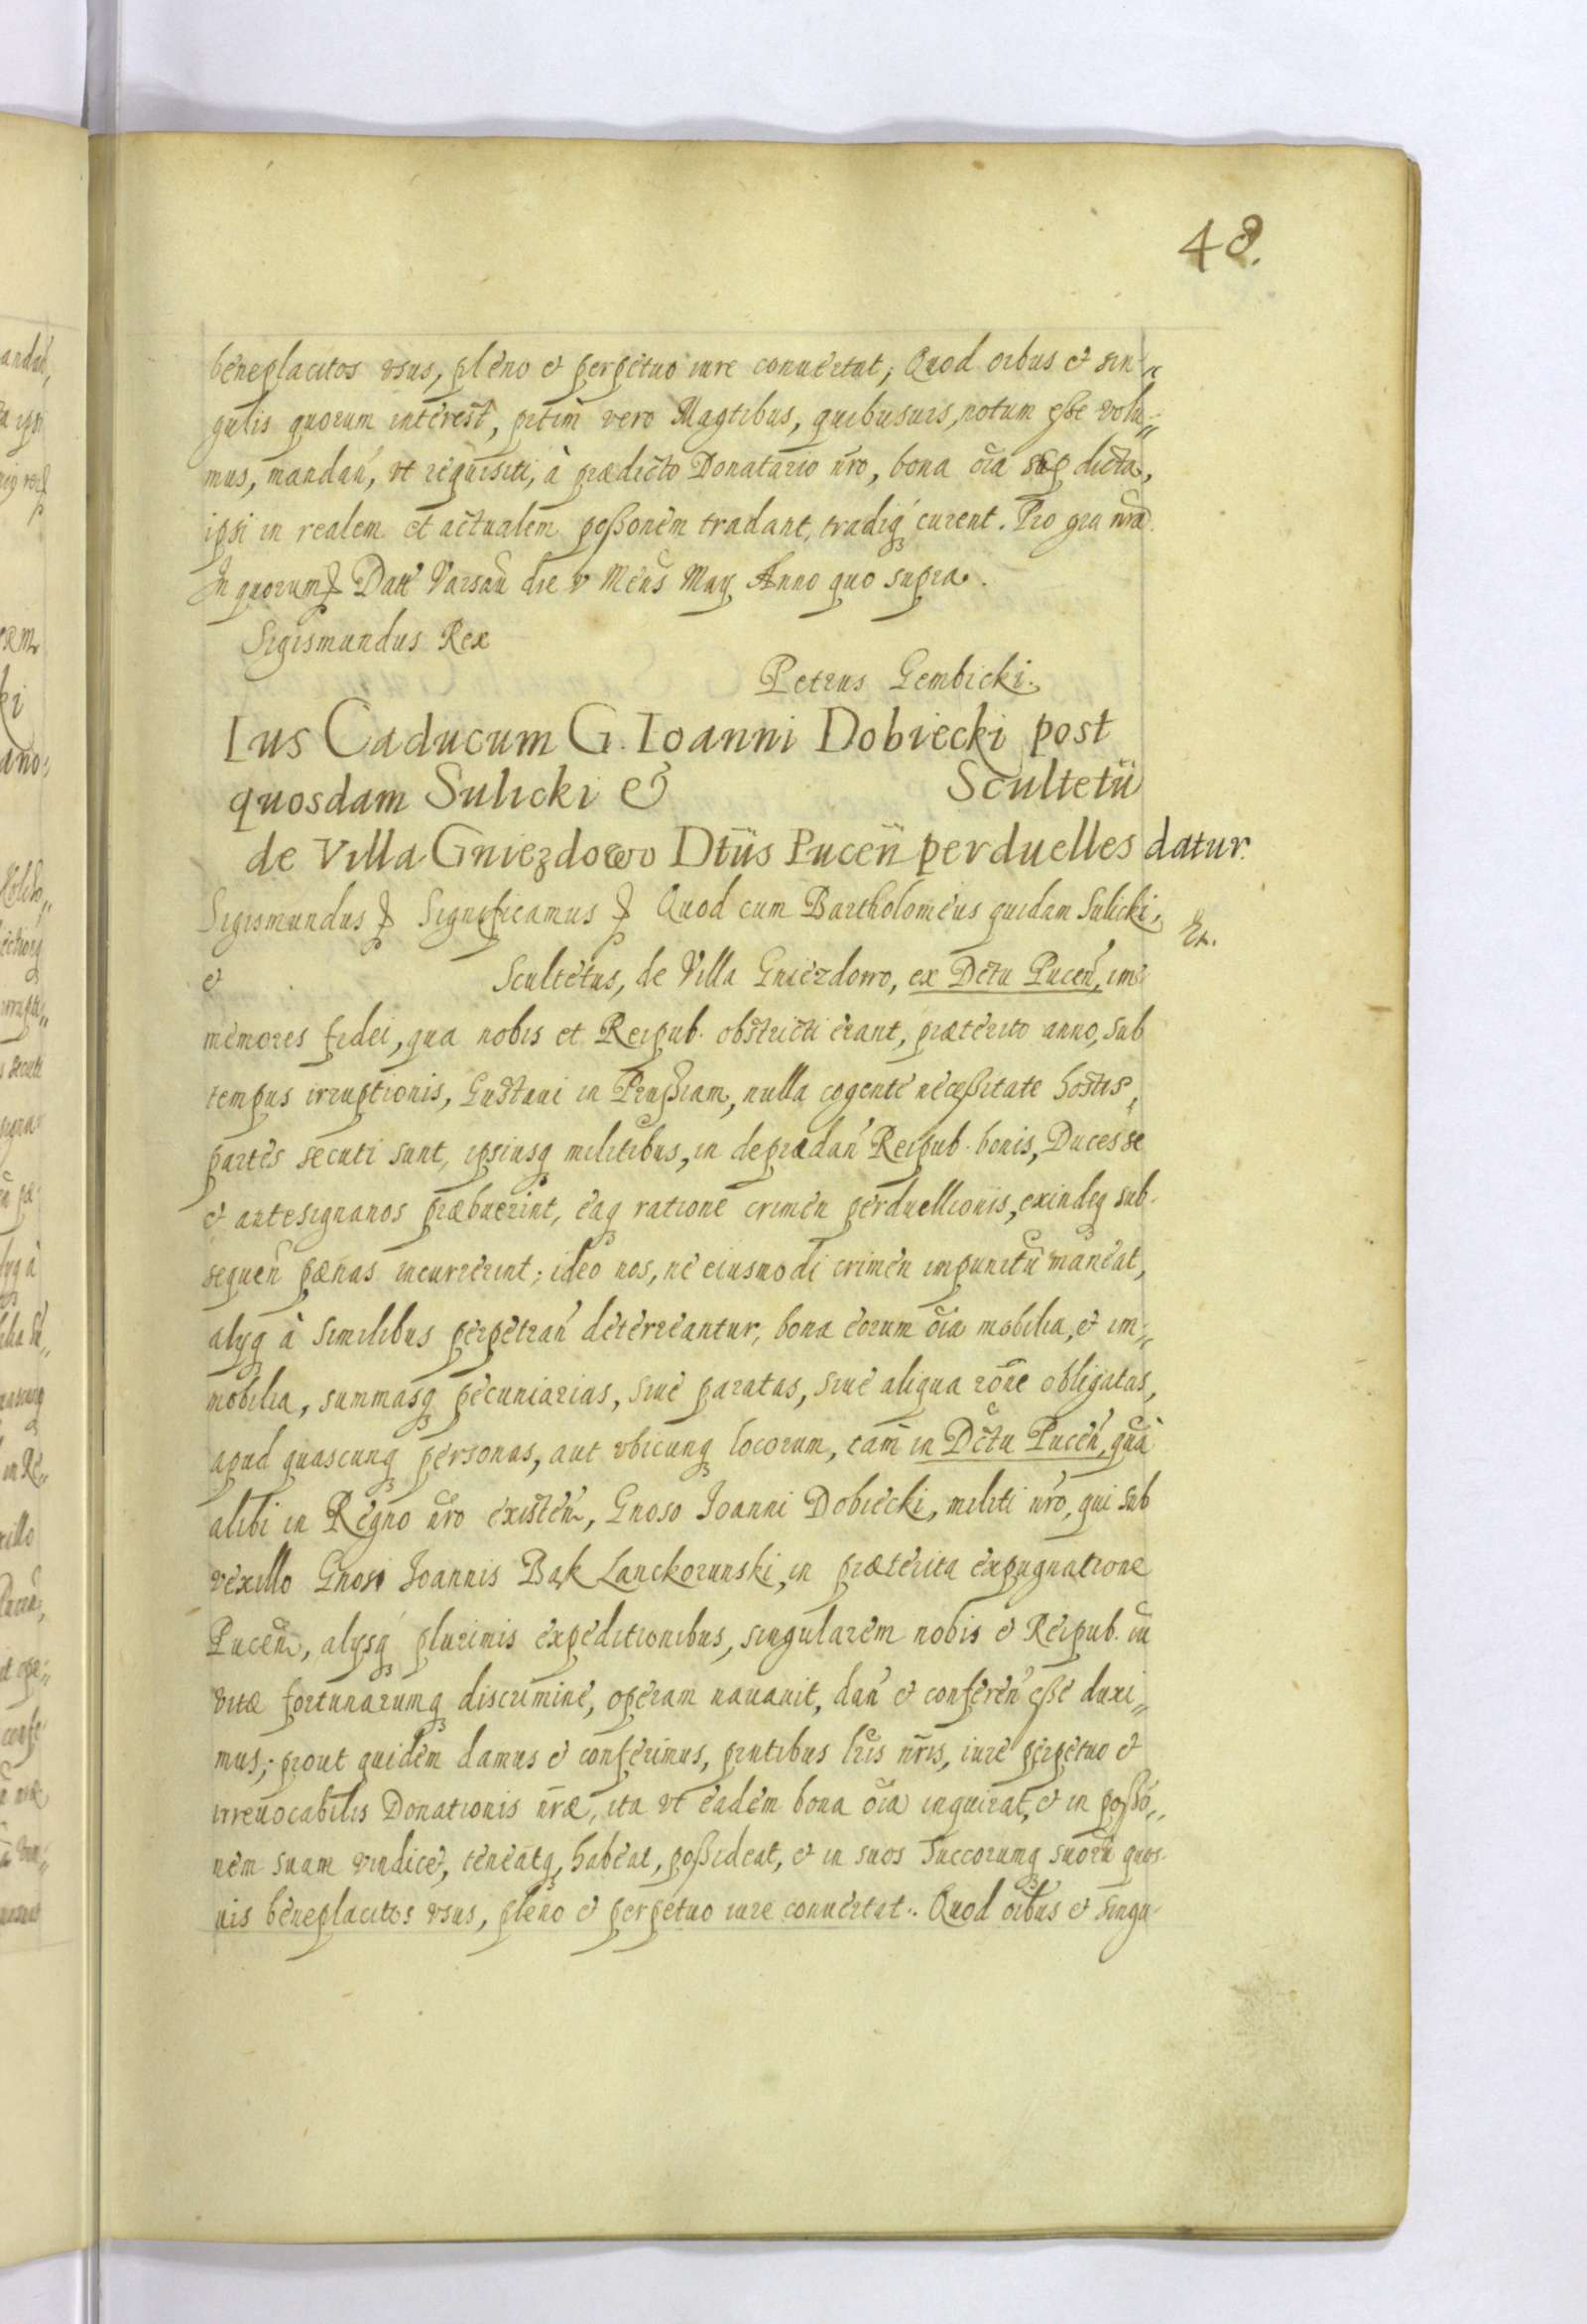 48.
beneplacitos vsus, pleno et perpetuo iure conuertat; Quod oibus et sin„
gulis quorum interest, ptim vero Magtibus, quibusuis, notum esse volu„
mus, mandań, vt requisiti, à prædicto Donatario nro, bona oia sup dicta,
ipsi in realem et actualem possonem tradant, tradiq́ curent. Pro gra nra.
In quorum Datt Varsau die v Mens Maij Anno quo supra.
Sigismundus Rex
Petrus Gembicki.
Ius Caducum G. Ioanni Dobiecki post
quosdam Sulicki et Scultetū
de Villa Gniezdowo Dtūs Puceñ perduelles datur.
Sigismundus Significamus Quod cum Bartholomeus quidam Sulicki,
et Scultetus, de Villa Gniezdowo, ex Dctu Puceń, im-
memores fidei, qua nobis et Reipub. obstricti erant, præterito anno, sub
tempus irruptionis, Gustaui in Prussiam, nulla cogente necessitate hostis,
partes secuti sunt, ipsiusq militibus, in deprædań Reipub. bonis, Duces se
et antesignanos præbuerint, eaq ratione crimen perduellionis, exindeq sub-
sequeñ pænas incurrerint; ideo nos, ne eiusmodi crimen impunitū maneat,
alijq à similibus perpetrań deterreantur, bona eorum oia mobilia, et im„
mobilia, summasq pecuniarias, siue paratas, siue aliqua rone obligatas,
apud quascunq personas, aut vbicunq locorum, tam in Dctu Puceń, quā
alibi in Regno nro existeñ, Gnoso Joanni Dobiecki, militi nro, qui sub
vexillo Gnosi Joannis Bąk Lanckorunski, in præterita expugnatione
Puceñ, alijsq́ plurimis expeditionibus, singularem nobis et Reipub. in
vitæ fortunarumq discrimine, operam nauauit, dań et confereń esse duxi„
mus; prout quidem damus et conferimus, pntibus lris nris, iure perpetuo et
irreuocabilis Donationis nræ, ita vt eadem bona oia inquirat, et in posso„
nem suam vindicet, teneatq, habeat, possideat, et in suos Succorumq suorū quos-
uis beneplacitos vsus, pleno et perpetuo iure conuertat. Quod oibus et singu-